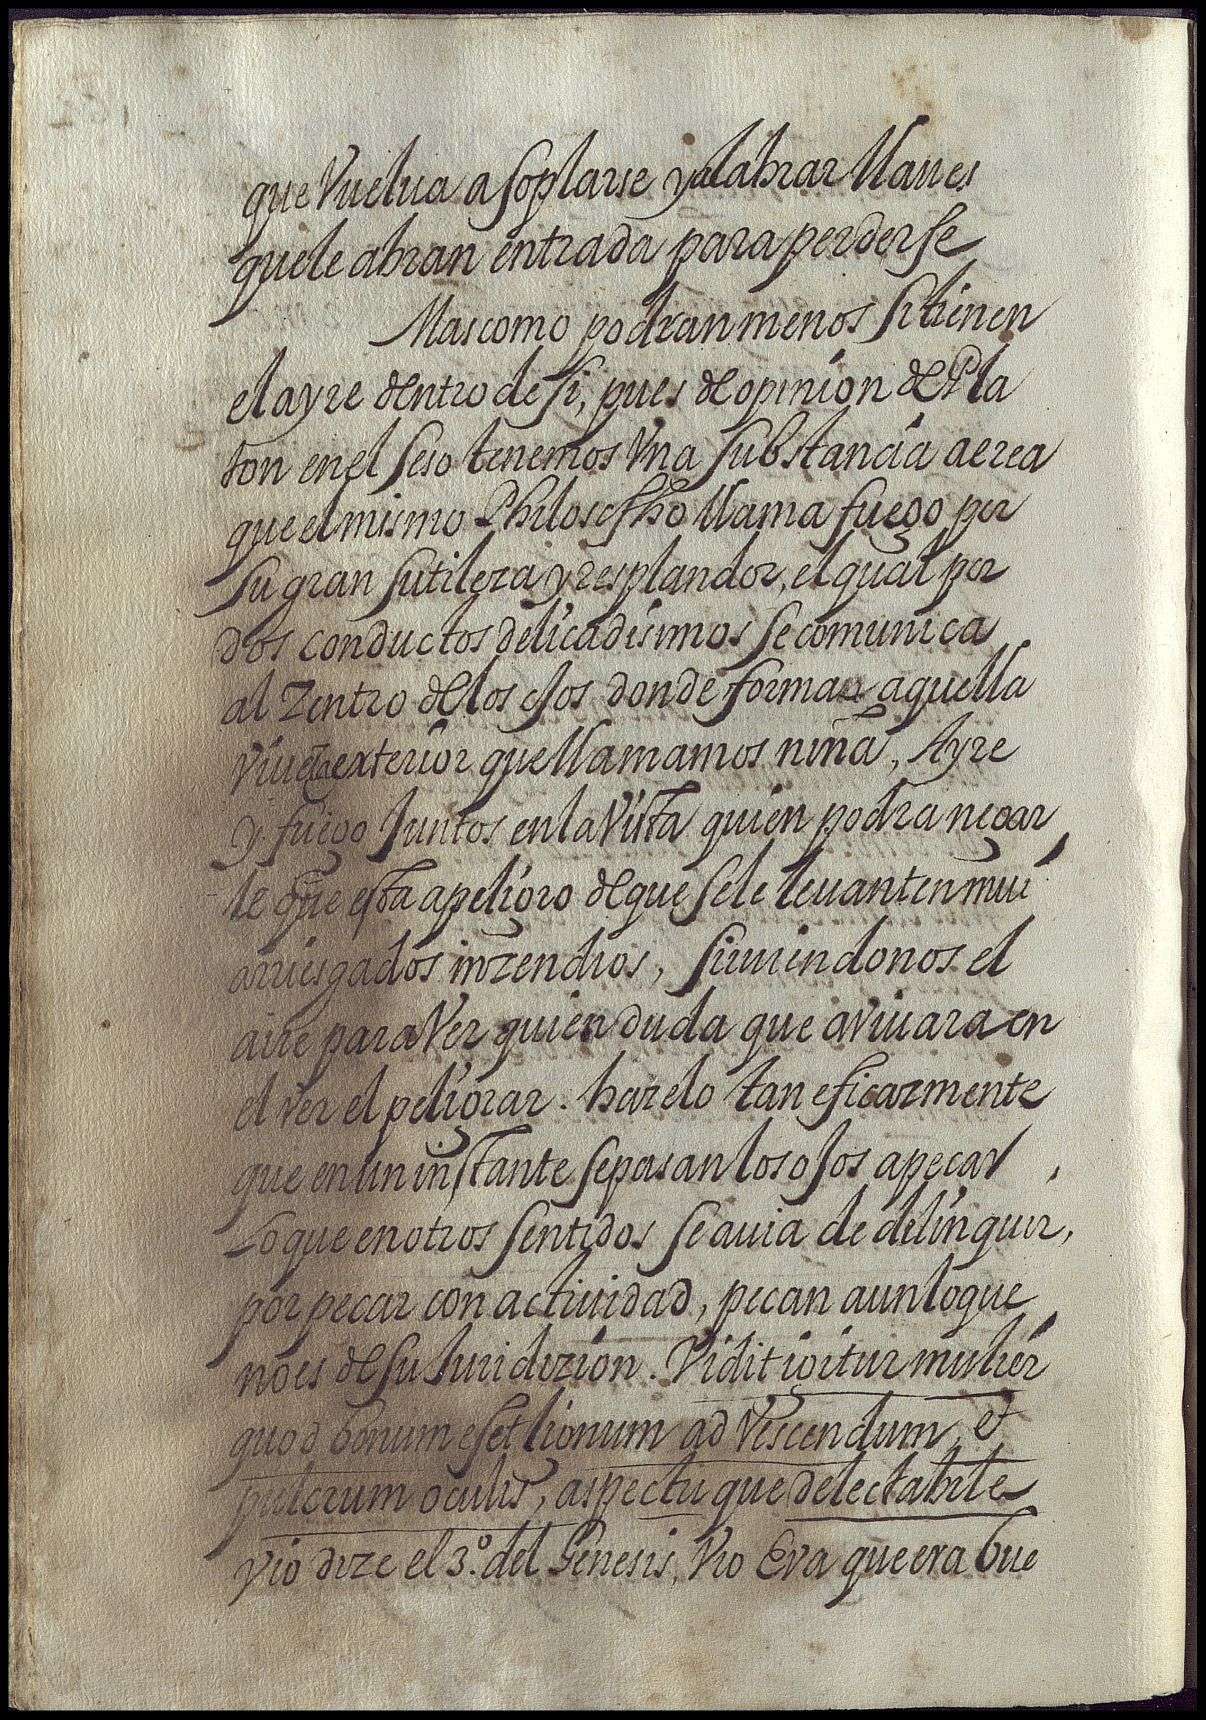 que Vuelua a soplarse y alabrar llaues
que le abran entrada para perderse
Mas como podran menos si tienen
el ayre dentro de si, pues de opinion de Pla
ton en el seso tenemos Vna substancia aerea
que el mismo Philosopho llama fuego por
su gran sutileza y resplandor, el qual por
dos conductos delicadisimos se comunica
al Zentro de los ojos donde forma aquella
exterior que llamamos niña, Ayre
y fuego Juntos en la Vista quien podra negar
le que esta a peligro de que se le leuanten mui
arriesgados inzendios, siruiendonos el
aire para Ver quien duda que aViuara en
el ver el peligrar. harelo tan eficazmente
que en un instante se pasan los ojos a pecar
Lo que en otros sentidos se auia de delinquir,
por pecar con actiuidad, pecan aun lo que
no es de su Juridizion. Vidit igitur mulier
quod bonum eset lignum ad Vescendum, et
pulcrum oculis, aspectu que delectabile
Vio dize el 3º. del Genesis, Vio Eva que era bue